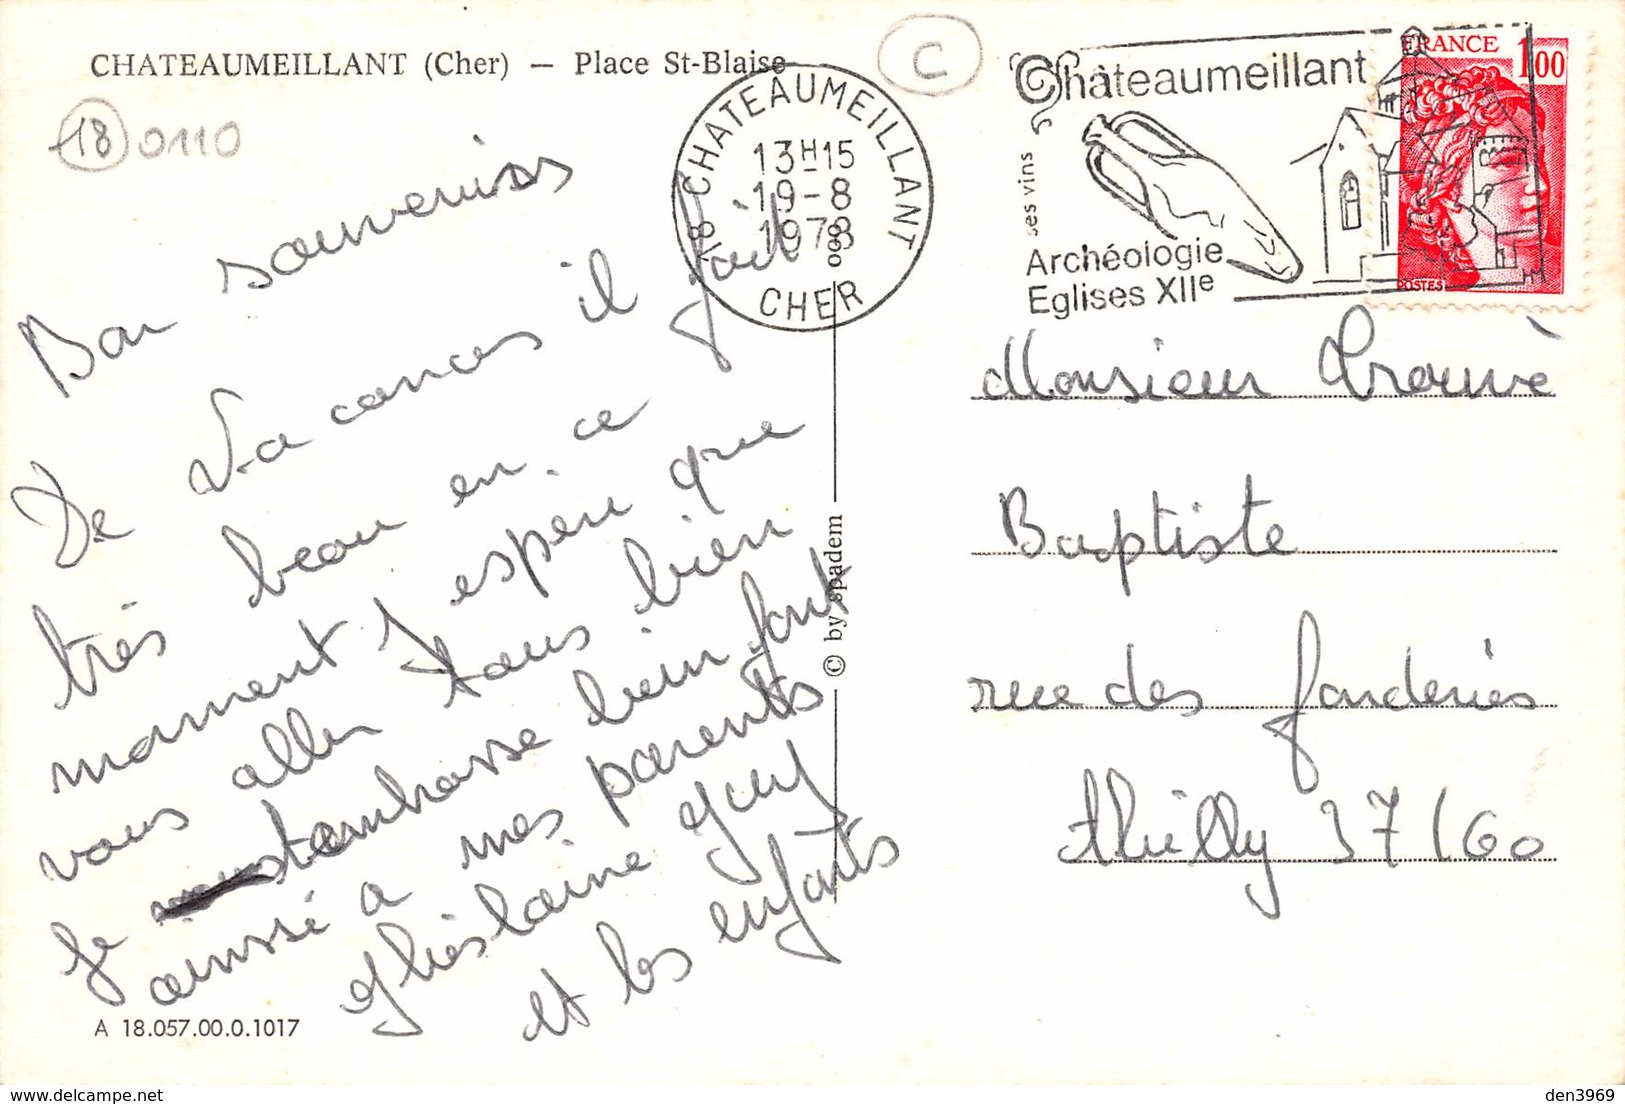 CHATEAUMEILLANT (Cher) — Place St-Blaise
18 0110
C
18 CHATEAUMEILLANT
13H15
19-8
1978
CHER
Châteaumeillant
ses vins
Archéologie
Eglises XIIe
FRANCE 1,00
POSTES
Bon souvenirs
De Vacances il fait
très beau en ce
moment j'esperu que
vous aller tous bien
Je t'embrasse bien fort
aussi a mes parents
Ghislaine Guy
et les enfants
© by spadem
Monsieur Trouvè
Baptiste
rue des fonderies
thilly 37160
A 18.057.00.0.1017
den3969